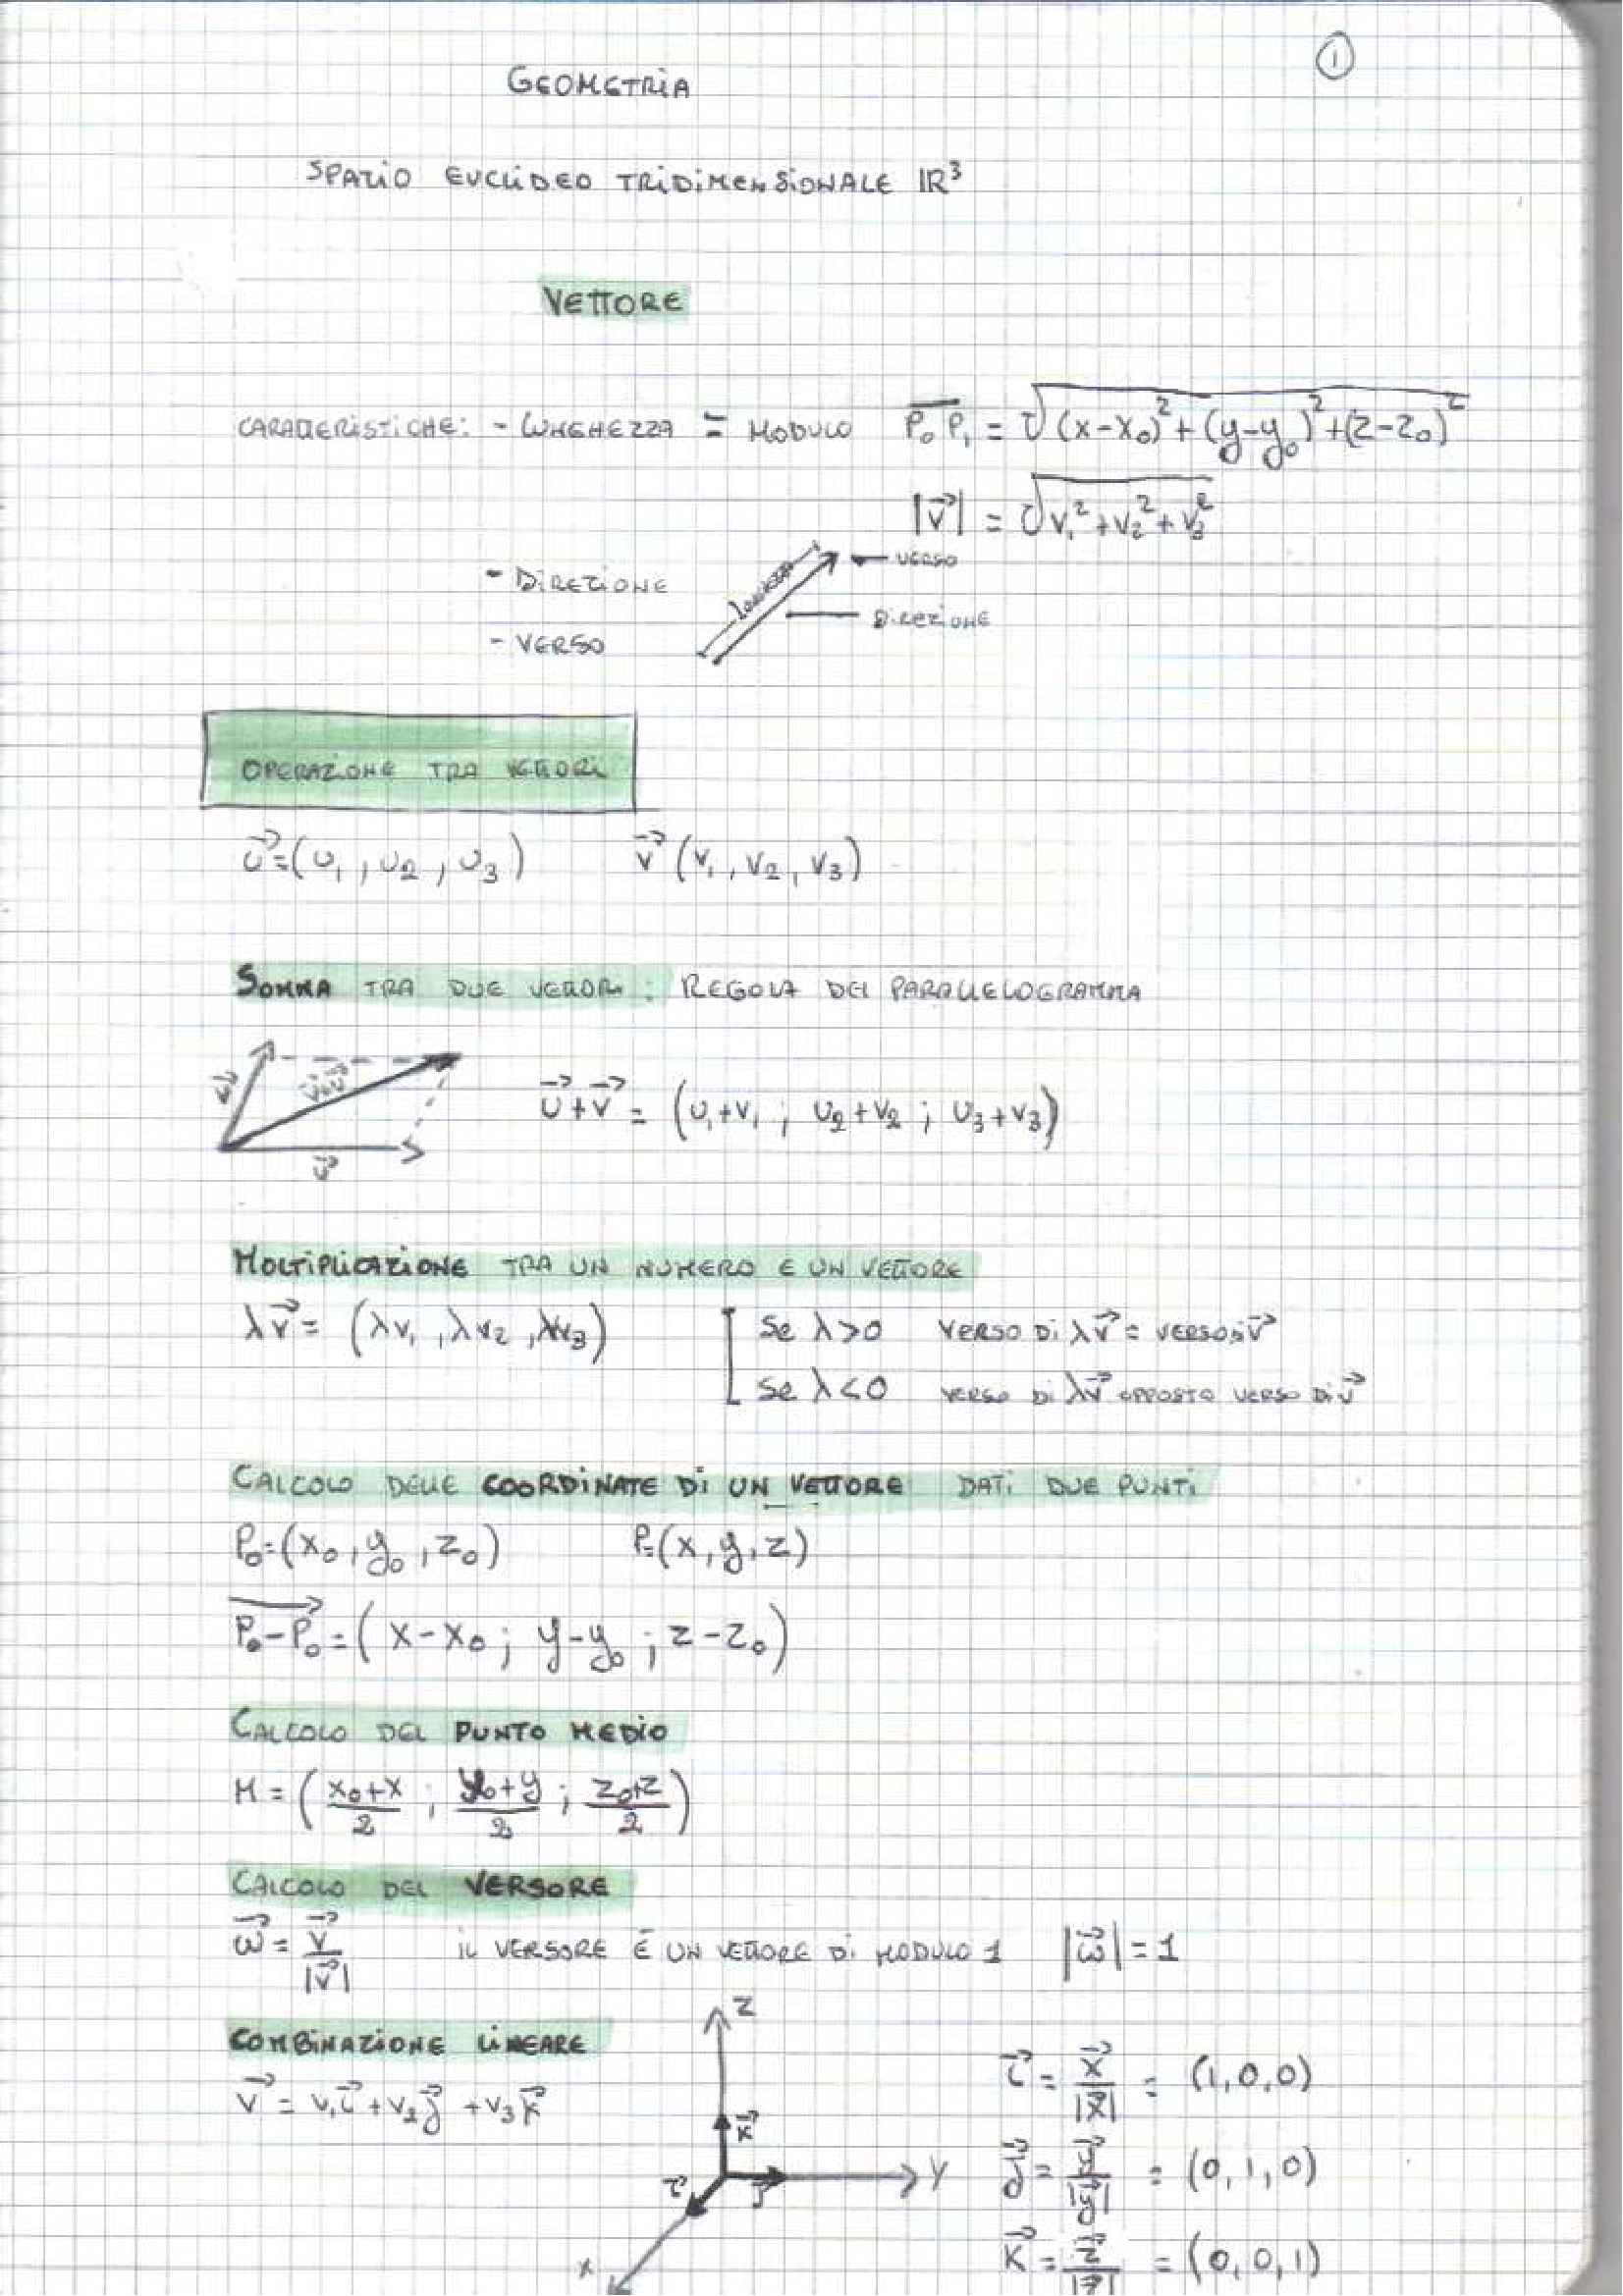 ①
GEOMETRIA
SPAZIO EUCLIDEO TRIDIMENSIONALE ℝ³
VETTORE
CARATTERISTICHE: - LUNGHEZZA = MODULO P₀P₁ = √(x-x₀)²+(y-y₀)²+(z-z₀)²
|v⃗| = √v₁²+v₂²+v₃²
- DIREZIONE
- VERSO
LUNGHEZZA
VERSO
DIREZIONE
OPERAZIONE TRA VETTORI
u⃗=(u₁, u₂, u₃) v⃗ (v₁, v₂, v₃)
SOMMA TRA DUE VETTORI: REGOLA DEL PARALLELOGRAMMA
u⃗+v⃗ = (u₁+v₁ ; u₂+v₂ ; u₃+v₃)
MOLTIPLICAZIONE TRA UN NUMERO E UN VETTORE
λv⃗ = (λv₁, λv₂, λv₃) [ Se λ>0 VERSO DI λv⃗ = VERSO DI v⃗
Se λ<0 VERSO DI λv⃗ OPPOSTO VERSO DI v⃗
CALCOLO DELLE COORDINATE DI UN VETTORE DATI DUE PUNTI
P₀=(x₀, y₀, z₀) P=(x, y, z)
P₀-P₀=( x-x₀ ; y-y₀ ; z-z₀)
CALCOLO DEL PUNTO MEDIO
M = ( x₀+x/2 ; y₀+y/2 ; z₀+z/2 )
CALCOLO DEL VERSORE
ω⃗ = v⃗/|v⃗| IL VERSORE È UN VETTORE DI MODULO 1 |ω⃗|=1
COMBINAZIONE LINEARE
v⃗ = v₁i⃗+v₂j⃗+v₃k⃗
z
k⃗
y
j⃗
i⃗
x
i⃗ = x⃗/|x⃗| = (1,0,0)
j⃗ = y⃗/|y⃗| = (0,1,0)
k⃗ = z⃗/|z⃗| = (0,0,1)